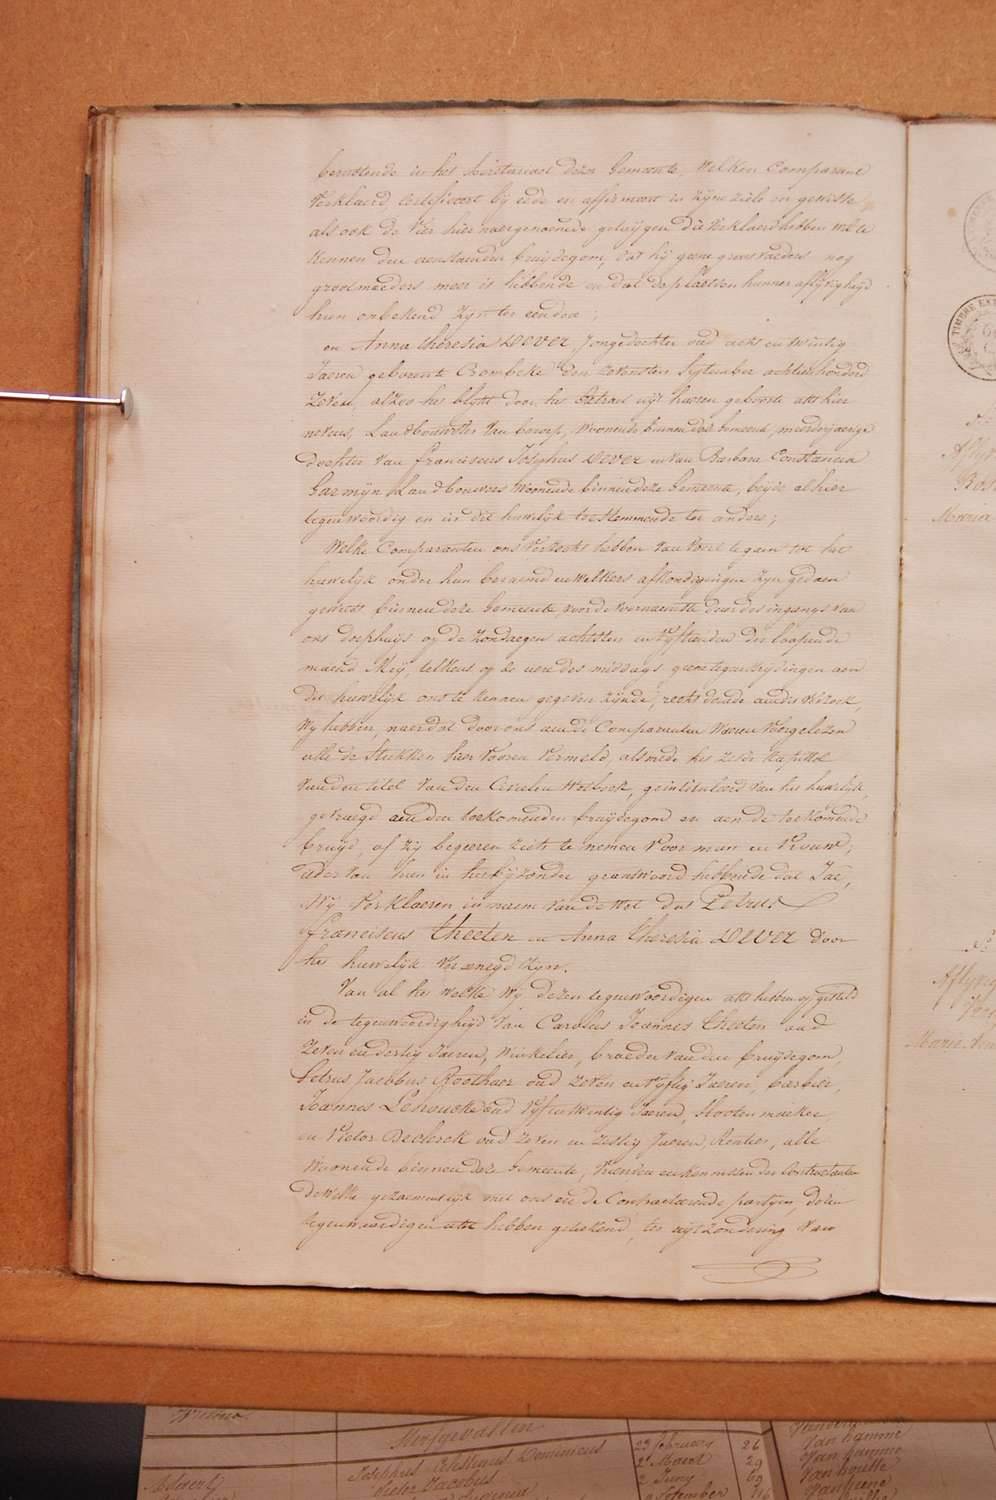 berustende in het secretariaet dezer Gemeente, welken Comparant
verklaerd, certificeert bij eede en affirmeert in zijne ziele en gewisse
als ook de vier hiernaergenoemde getuijgen die verklaerd hebben wel te
kennen den eenstaenden bruijdegom, dat hij geene grootvaeders nog
grootmoeders meer is hebbende en dat de plaetsen hunner aflijvigheijd
hun onbekend zijn ter eendere;
en Anna Theresia Dever Jongedochter oud acht en twintig
Jaeren geboren te Crombeke den zevensten September achtien honderd
zeven, alzoo het blijkt door het extract uijt haeren geboorte akt hier
nevens, Landbouwster van beroep, woonende binnen deze Gemeente, meerderjaerige
dochter van Franciscus Josephus Dever en van Barbara Constancia
Garmijn Landbouwers woonende binnen deze Gemeente, beijde alhier
tegenwoordig en in dit huwelijk toestemmende ter andere;
Welke Comparanten ons verzocht hebben van voort te gaen tot het
huwelijk onder hun beraemd en welkers afkondigingen zijn gedaen
geweest binnen deze Gemeente, voor de voornaemste deur des ingangs van
ons dorphuijs op de zondagen achtsten en vijftienden der loopende
maend Meij, telkens op de uere des middags geene tegenstrijdingen aen
dit huwelijk ons te kennen gegeven zijnde, recht doende aen dit verzoek,
Wij hebben, naer dat door ons aen de Comparanten waeren voorgelezen
alle de stukken hier vooren vermeld, alsmede het zesde kapittel
van den titel van den Civielen Wetboek, geintituleerd van het huwelijk,
gevraegd aen den toekomenden bruijdegom en aen de toekomende
bruijd, of zij begeeren zich te nemen voor man en vrouw;
ider van hun in het bijzonder geantwoord hebbende dat Jae,
Wij verklaeren in naem van de wet dat Petrus
Franciscus Theeten en Anna Theresia Dever door
het huwelijk vereenegd zijn.
Van al het welke wij dezen tegenwoordigen akt hebben opgesteld
in de tegenwoordigheijd van Carolus Joannes Theeten oud
zeven en dertig Jaeren, winkelier, broeder van den bruijdegom,
Petrus Jacobus oud zeven en vijftig Jaeren, barbier,
Joannes Lehoucke oud vijfentwintig Jaeren, maeker
en Victor Declerck oud zeven en zestig Jaeren, Rentier, alle
woonende binnen deze Gemeente, vrienden en kennissen der Contractanten
Dewelke gezaementlijk met ons en de Contracteerende partijen, dezen
tegenwoordigen akt hebben geteekend, ter uijtzondering van
TIMBRE EXT
Aflyv
Ros
Maria
Aflyv
Marie Ann
Sterfgevallen
Josephus Dominicus
Pieter Jacobus
23 february 26
2 Maert 29
2 Juny 69
September 116
Van hamme
Van hamme
Van houtte